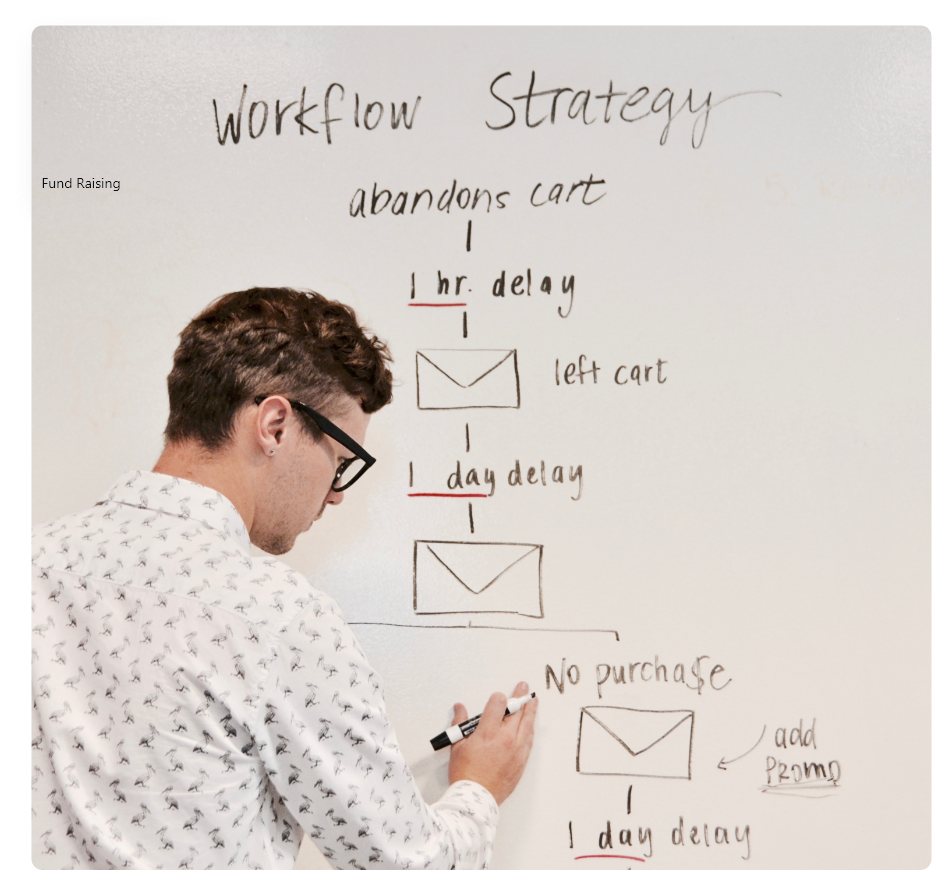 Workflow Strategy
Fund Raising
abandons cart
1 hr. delay
left cart
1 day delay
No purchase
add
PROMO
1 day delay